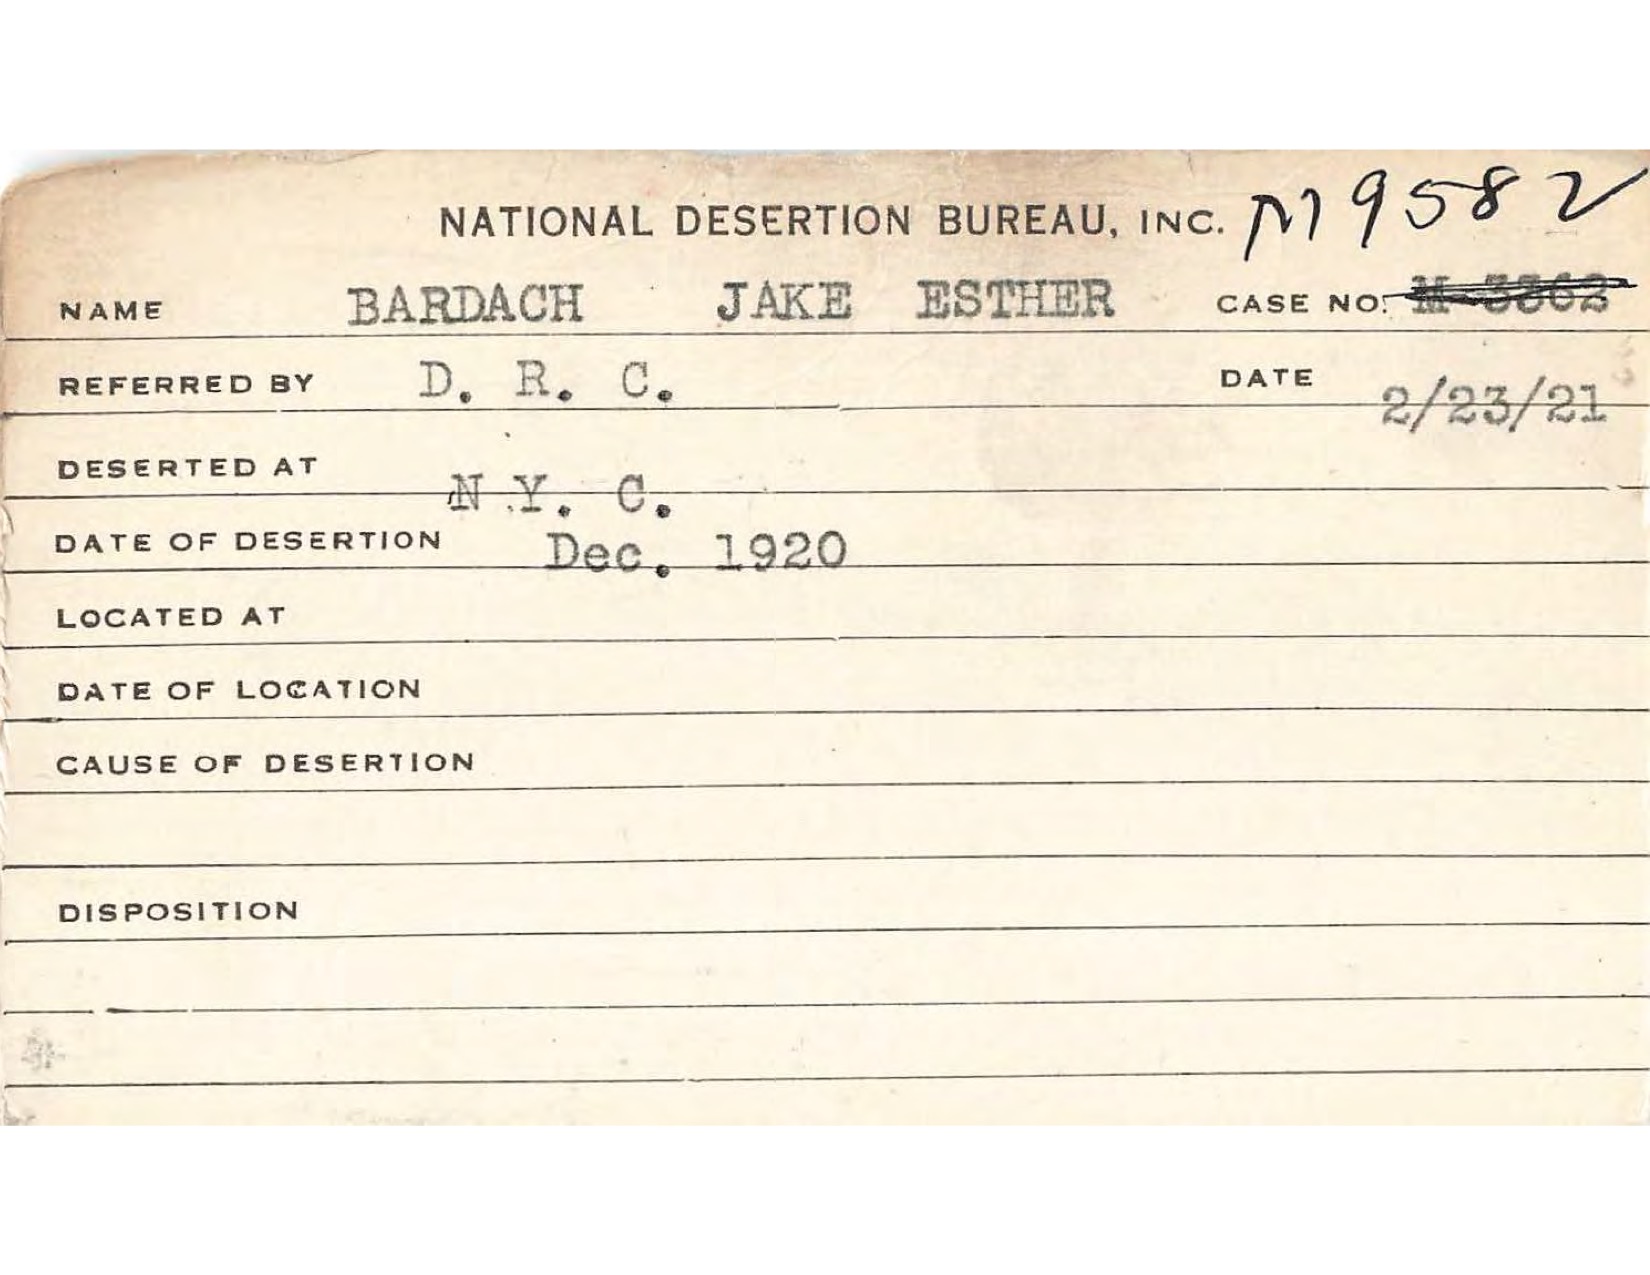 NATIONAL DESERTION BUREAU, INC. M9582
NAME BARDACH JAKE ESTHER CASE NO. M-3362
REFERRED BY D. R. C. DATE 2/23/21
DESERTED AT N.Y. C.
DATE OF DESERTION Dec. 1920
LOCATED AT
DATE OF LOCATION
CAUSE OF DESERTION
DISPOSITION